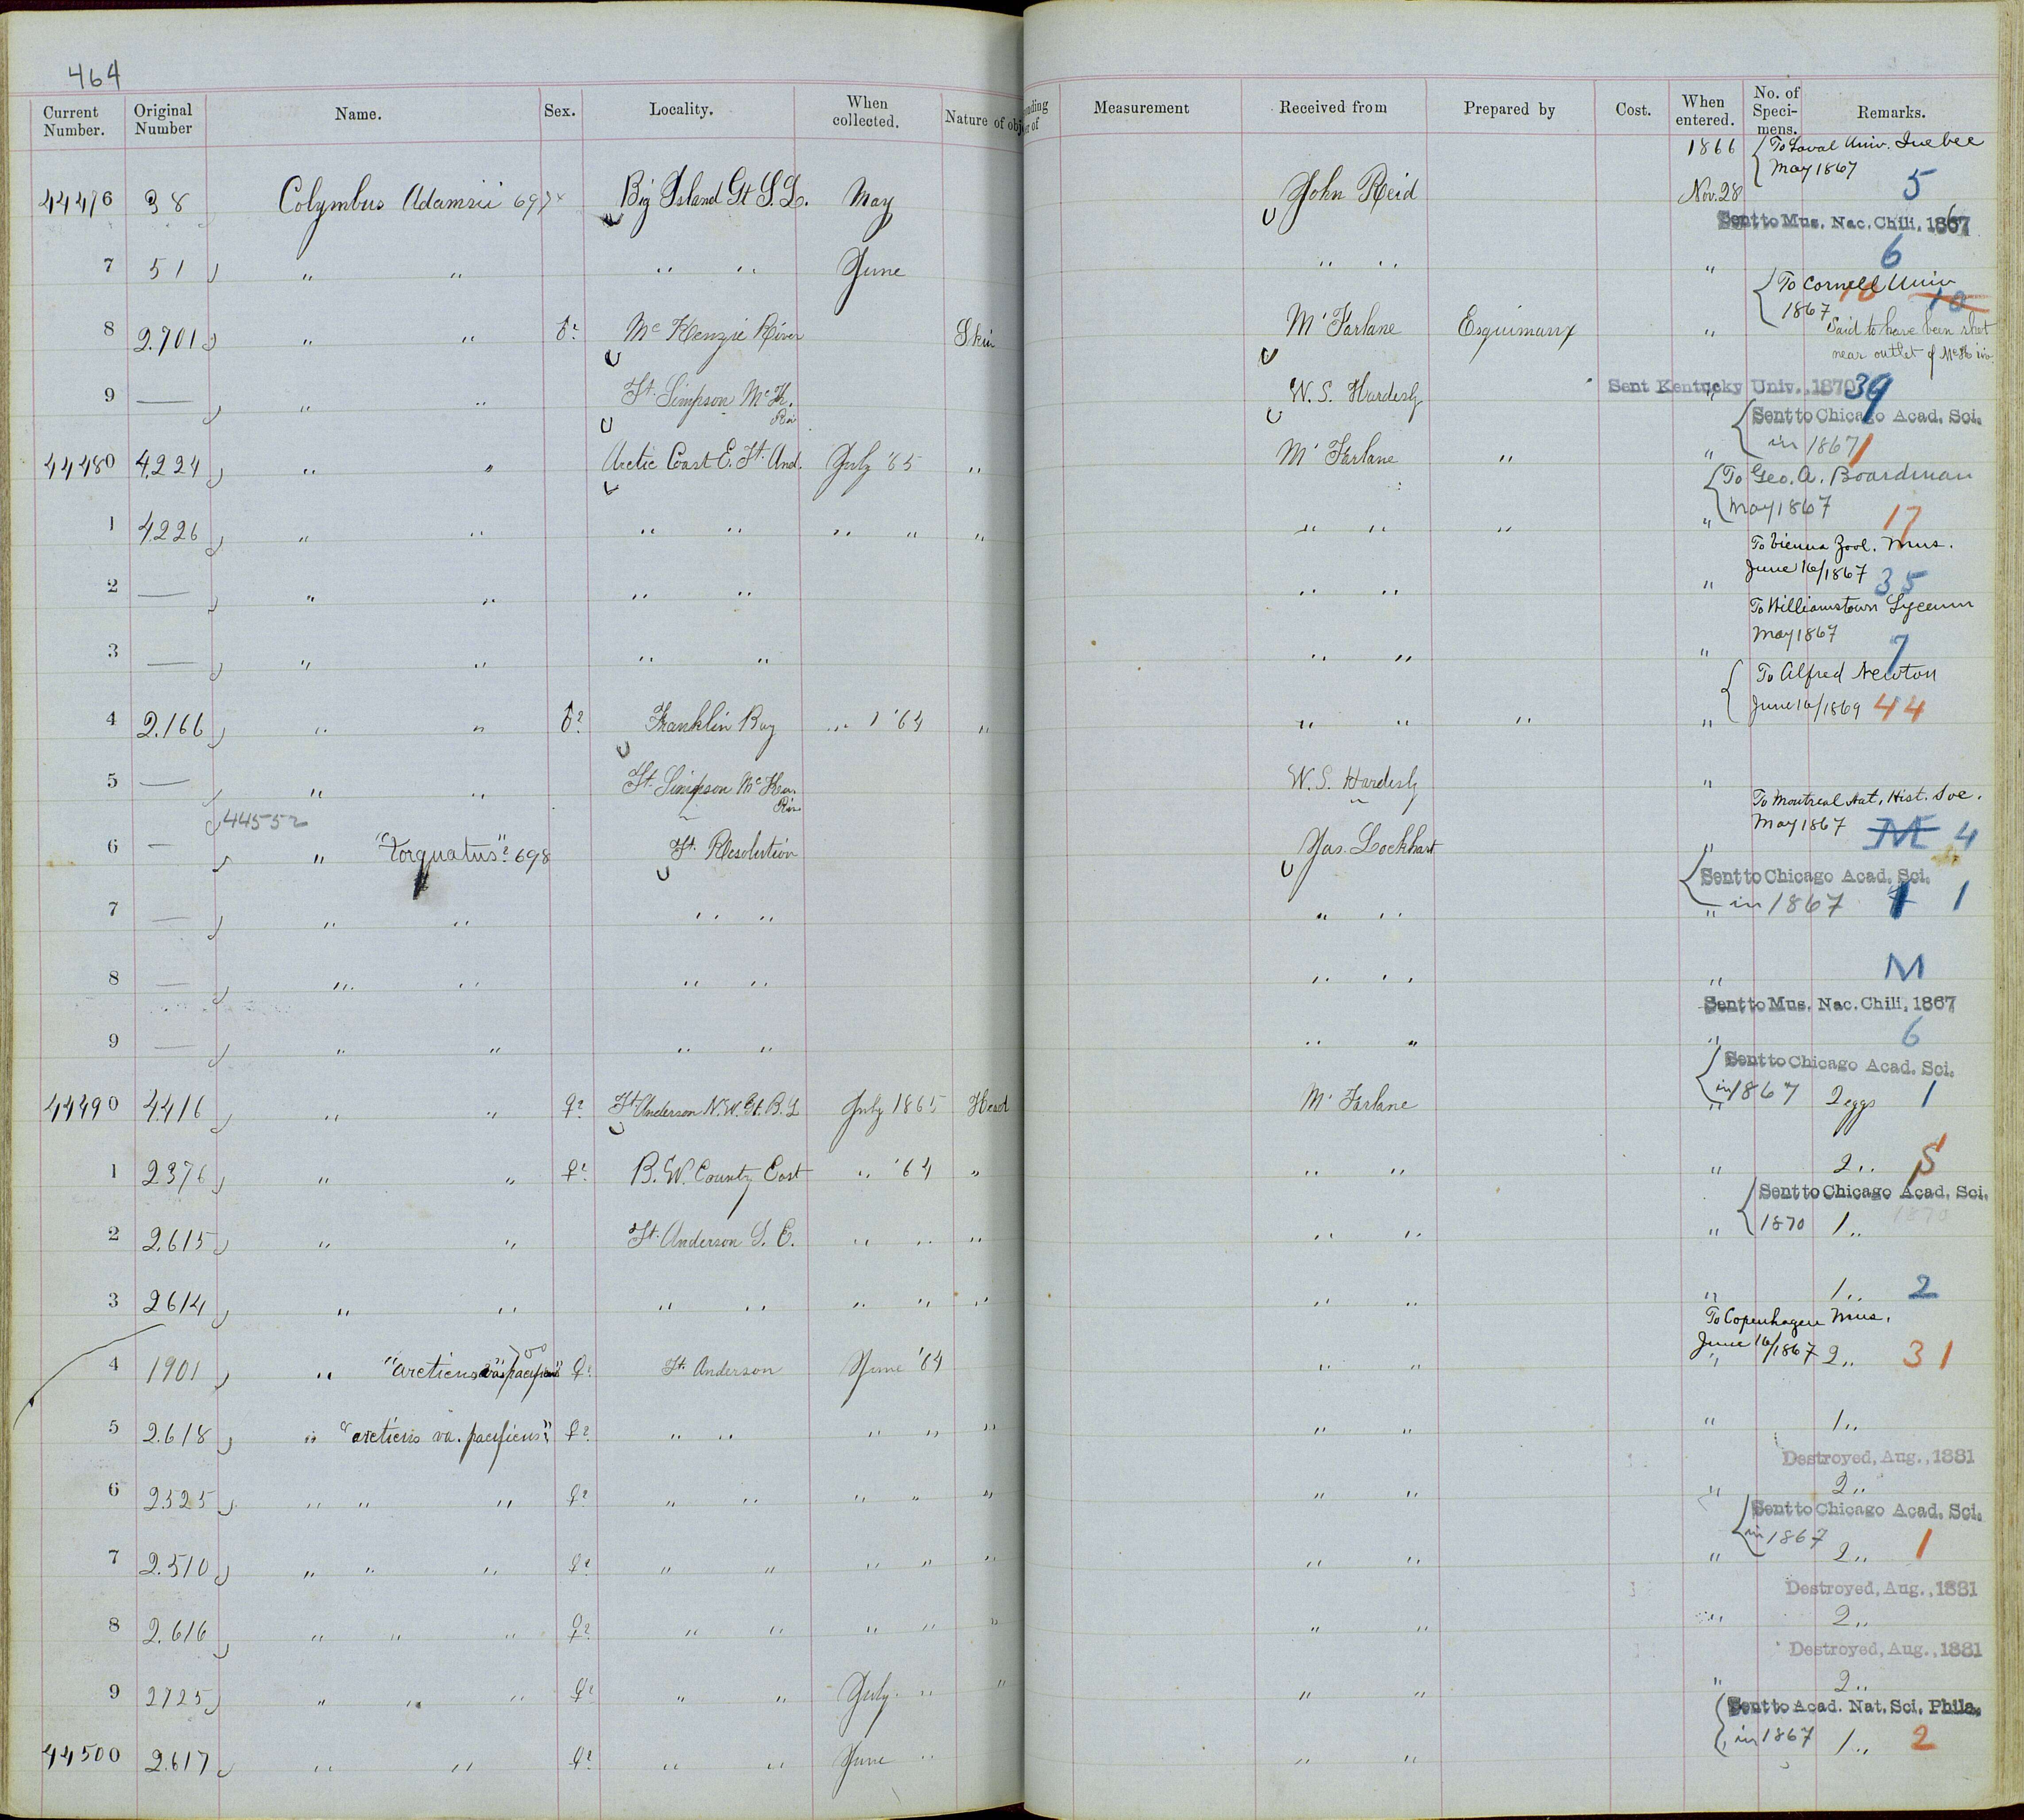 464
Current Number. Original Number Name. Sex. Locality. When collected. Nature of obj
nding r of Measurement Received from Prepared by Cost. When entered. No. of Speci- mens. Remarks.
1866 To Laval Univ. Quebec
May 1867
44476 38 Colymbus Adamsii 697 Big Island Gt S. L. May John Reid Nov. 28 5
Sent to Mus. Nac. Chili, 1867
6
7 51 " " " " June " " "
To Cornell Univ
1867 10
8 2701 " " ♂? Mc Kenzie River Skin M'Farlane Esquimaux "
Said to have been shot
near outlet of McK riv.
Sent Kentucky Univ., 1870 39
9 — " " Ft. Simpson McK. Riv W. S. Hardesty "
Sent to Chicago Acad. Sci.
in 1867 1
44480 4224 " " Arctic Coast E. Ft. And. July '65 " M'Farlane " "
To Geo. A. Boardman
May 1867 17
1 4226 " " " " " " " " " " "
To Vienna Zool. Mus.
June 16/1867 35
2 — " " " " " " "
To Williamstown Lyceum
May 1867 7
3 — " " " " " " "
To Alfred Newton
June 16/1869 44
4 2166 " " ♂? Franklin Bay " '64 " " " " "
5 — " " Ft. Simpson McKen. Riv W. S. Hardesty "
44552
To Montreal Nat. Hist. Soc.
May 1867 M 4
6 — " "torquatus"? 698 Ft. Resolution Jas. Lockhart "
Sent to Chicago Acad. Sci.
in 1867 1 1
7 — " " " " " " "
8 — " " " " " " " M
Sent to Mus. Nac. Chili, 1867
9 — " " " " " " " 6
Sent to Chicago Acad. Sci.
in 1867
44490 4416 " " ♀? Ft Anderson N.W. Gt. B. L July 1865 Head M'Farlane " 2 eggs 1
1 2376 " " ♀? B. W. County East " '64 " " " " 2 " 5
Sent to Chicago Acad. Sci.
1870 1870
2 2615 " " Ft. Anderson S. E. " " " " " " 1 "
3 2614 " " " " " " " " " " 1 " 2
To Copenhagen Mus.
June 16/1867
700
4 1901 " "arcticus va. pacificus" ♀? Ft. Anderson June '64 " " " 2 " 31
5 2618 " "arcticus va. pacificus" ♀? " " " " " " " " 1 "
Destroyed, Aug., 1881
6 2525 " " " ♀? " " " " " " " " 2 "
Sent to Chicago Acad. Sci.
in 1867
7 2510 " " " ♀? " " " " " " " " 2 " 1
Destroyed, Aug., 1881
8 2616 " " " ♀? " " " " " " " " 2 "
Destroyed, Aug., 1881
9 2725 " " " ♀? " " July " " " " " 2 "
Sent to Acad. Nat. Sci. Phila.
in 1867
44500 2617 " " ♀? " " June " " " 1 " 2